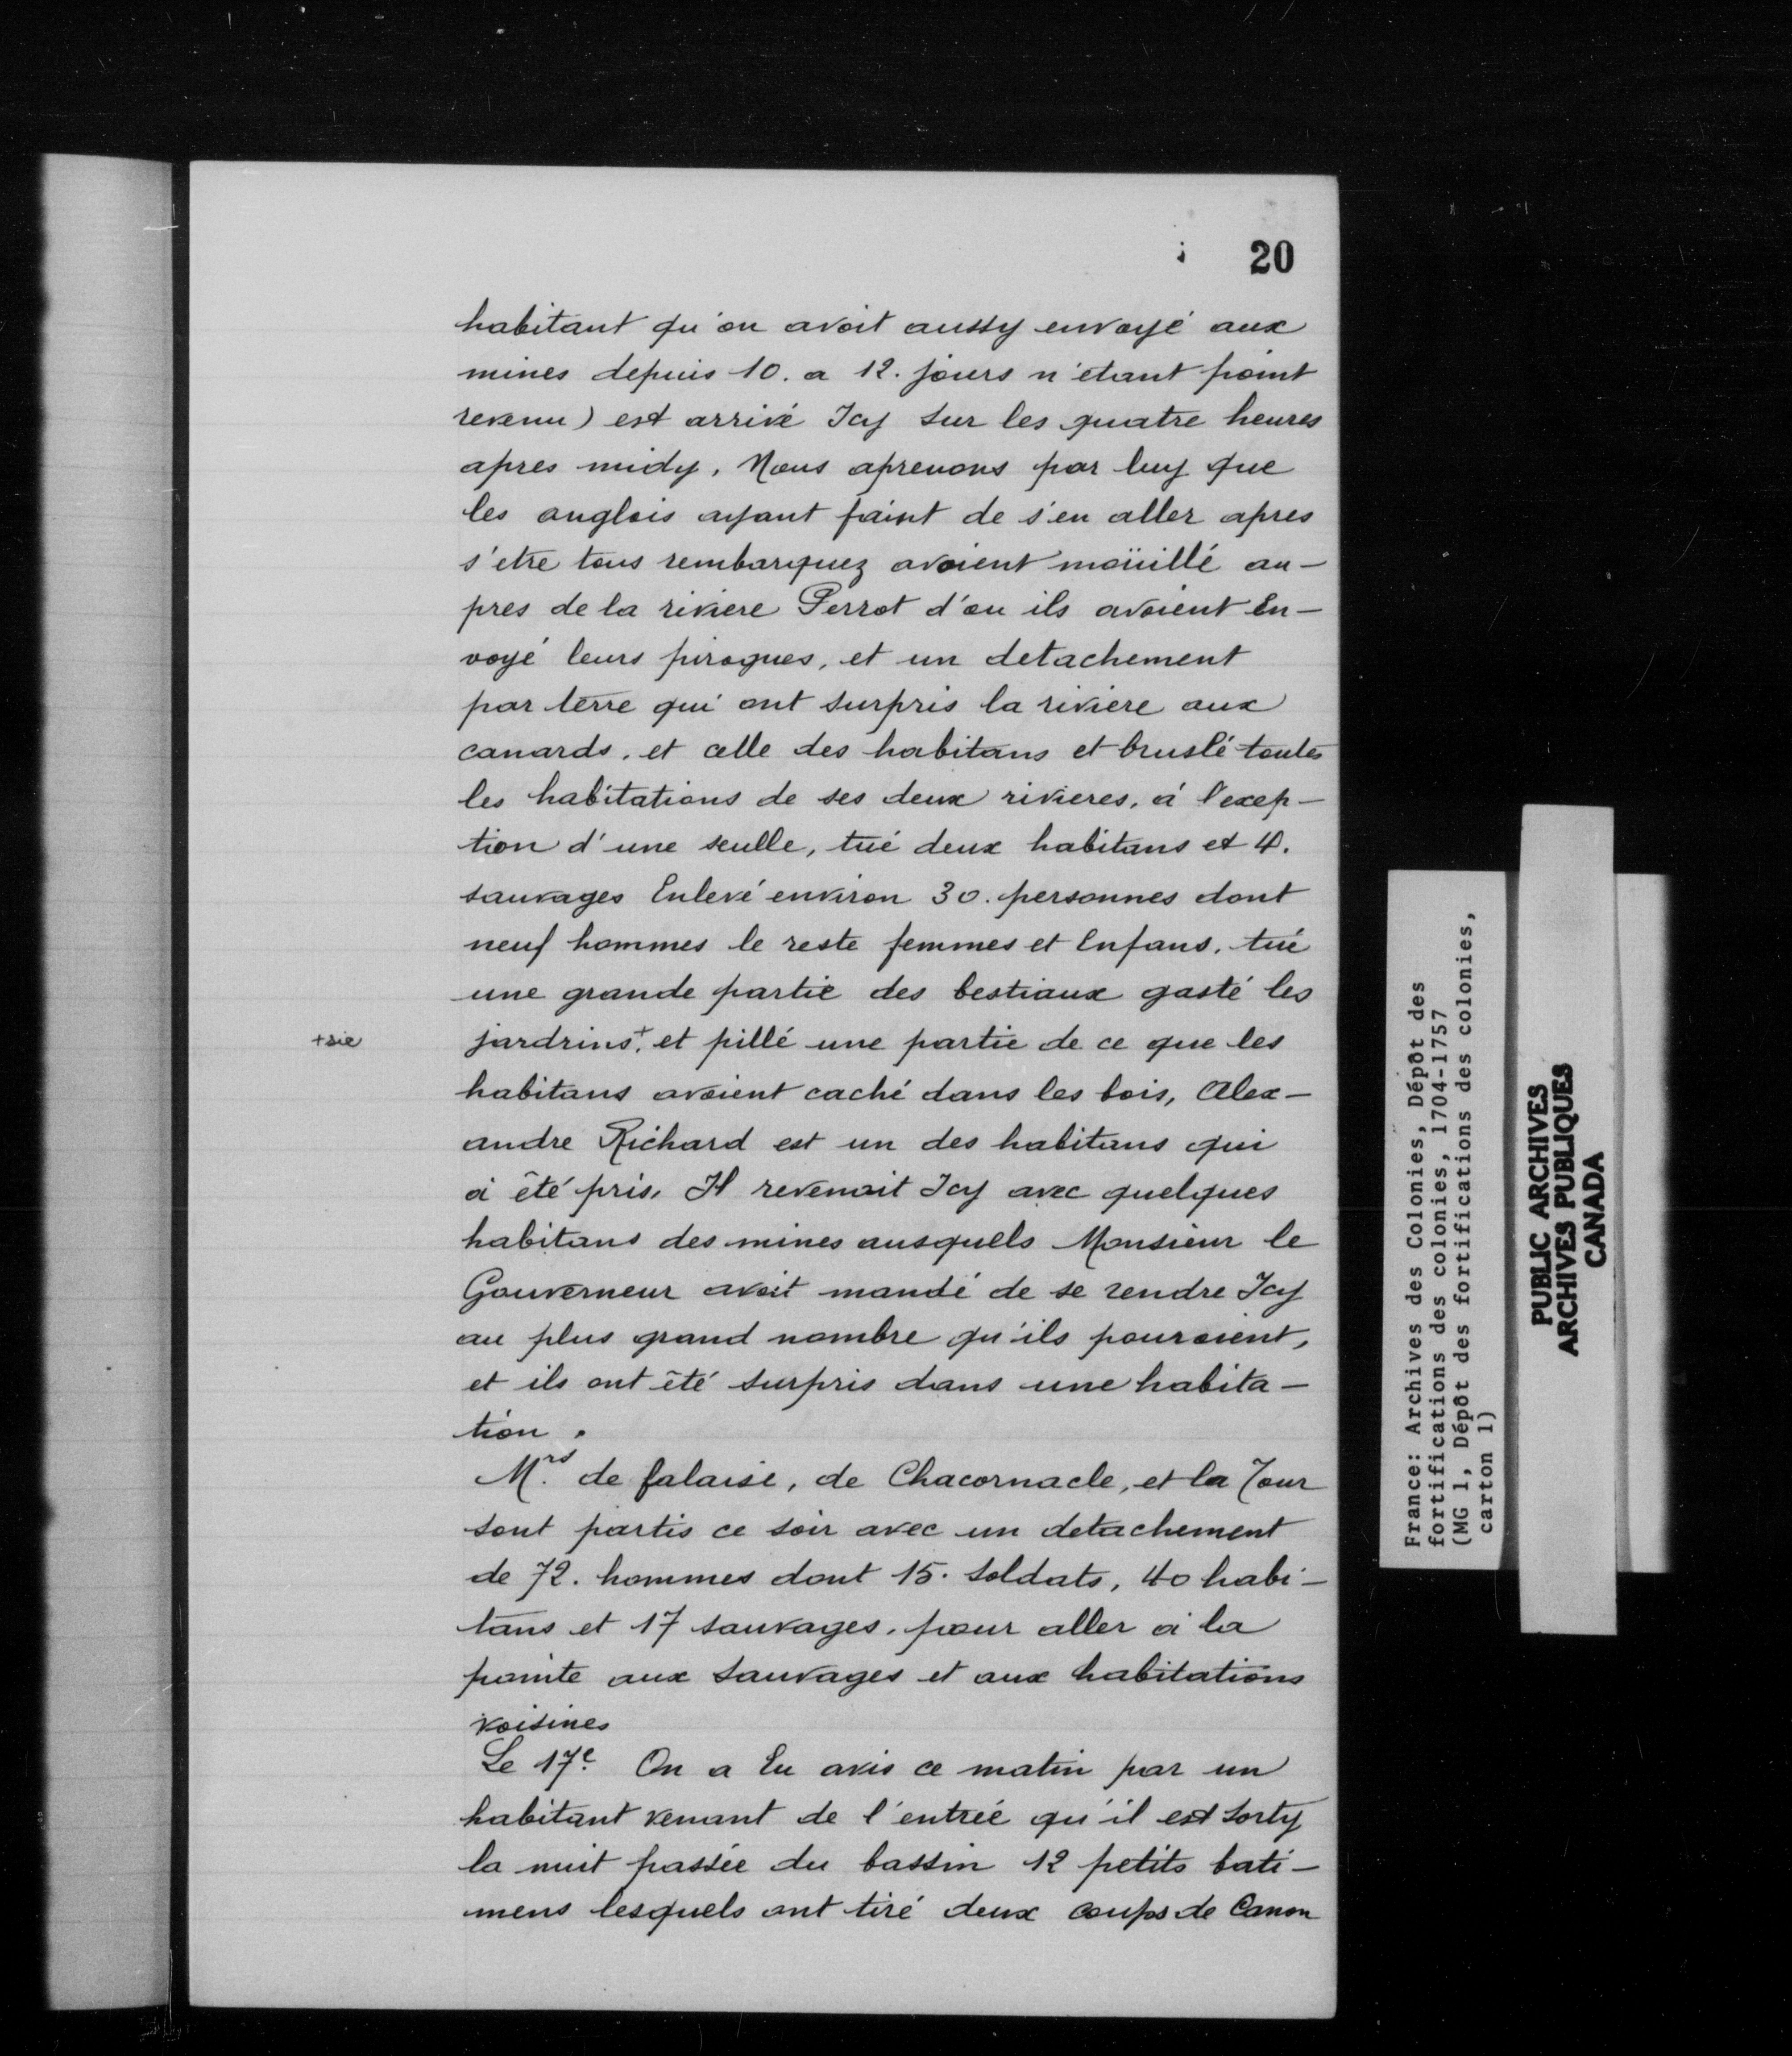 20
habitant qu'on avoit aussy envoyé aux
mines depuis 10. a 12. jours n'étant point
revenu) est arrivé Icy sur les quatre heures
apres midy, Nous aprenons par luy que
les anglois ayant faint de s'en aller apres
s'etre tous rembarquez avoient moüillé au-
pres de la riviere Perrot d'ou ils avoient En-
voyé leurs pirogues, et un detachement
par terre qui ont surpris la riviere aux
canards, et celle des habitans et bruslé toutes
les habitations de ses deux rivieres, à l'excep-
tion d'une seulle, tué deux habitans et 4.
sauvages Enlevé environ 30. personnes dont
neuf hommes le reste femmes et Enfans, tué
une grande partie des bestiaux gasté les
+sic jardrins+, et pillé une partie de ce que les
habitans avoient caché dans les bois, Alex-
andre Richard est un des habitans qui
a été pris, Il revenoit Icy avec quelques
habitans des mines ausquels Monsieur le
Gouverneur avoit mandé de se rendre Icy
au plus grand nombre qu'ils pouroient,
et ils ont été surpris dans une habita-
tion.
Mrs. de falaise, de Chacornacle, et la Tour
sont partis ce soir avec un detachement
de 72. hommes dont 15. soldats, 40 habi-
tans et 17 sauvages, pour aller à la
pointe aux sauvages et aux habitations
voisines
Le 17e. On a Eu avis ce matin par un
habitant venant de l'entrée qu'il est sorty
la nuit passée du bassin 12 petits bati-
mens lesquels ont tiré deux coups de Canon
France: Archives des Colonies, Dépôt des
fortifications des colonies, 1704-1757
(MG 1, Dépôt des fortifications des colonies,
carton 1)
PUBLIC ARCHIVES
ARCHIVES PUBLIQUES
CANADA